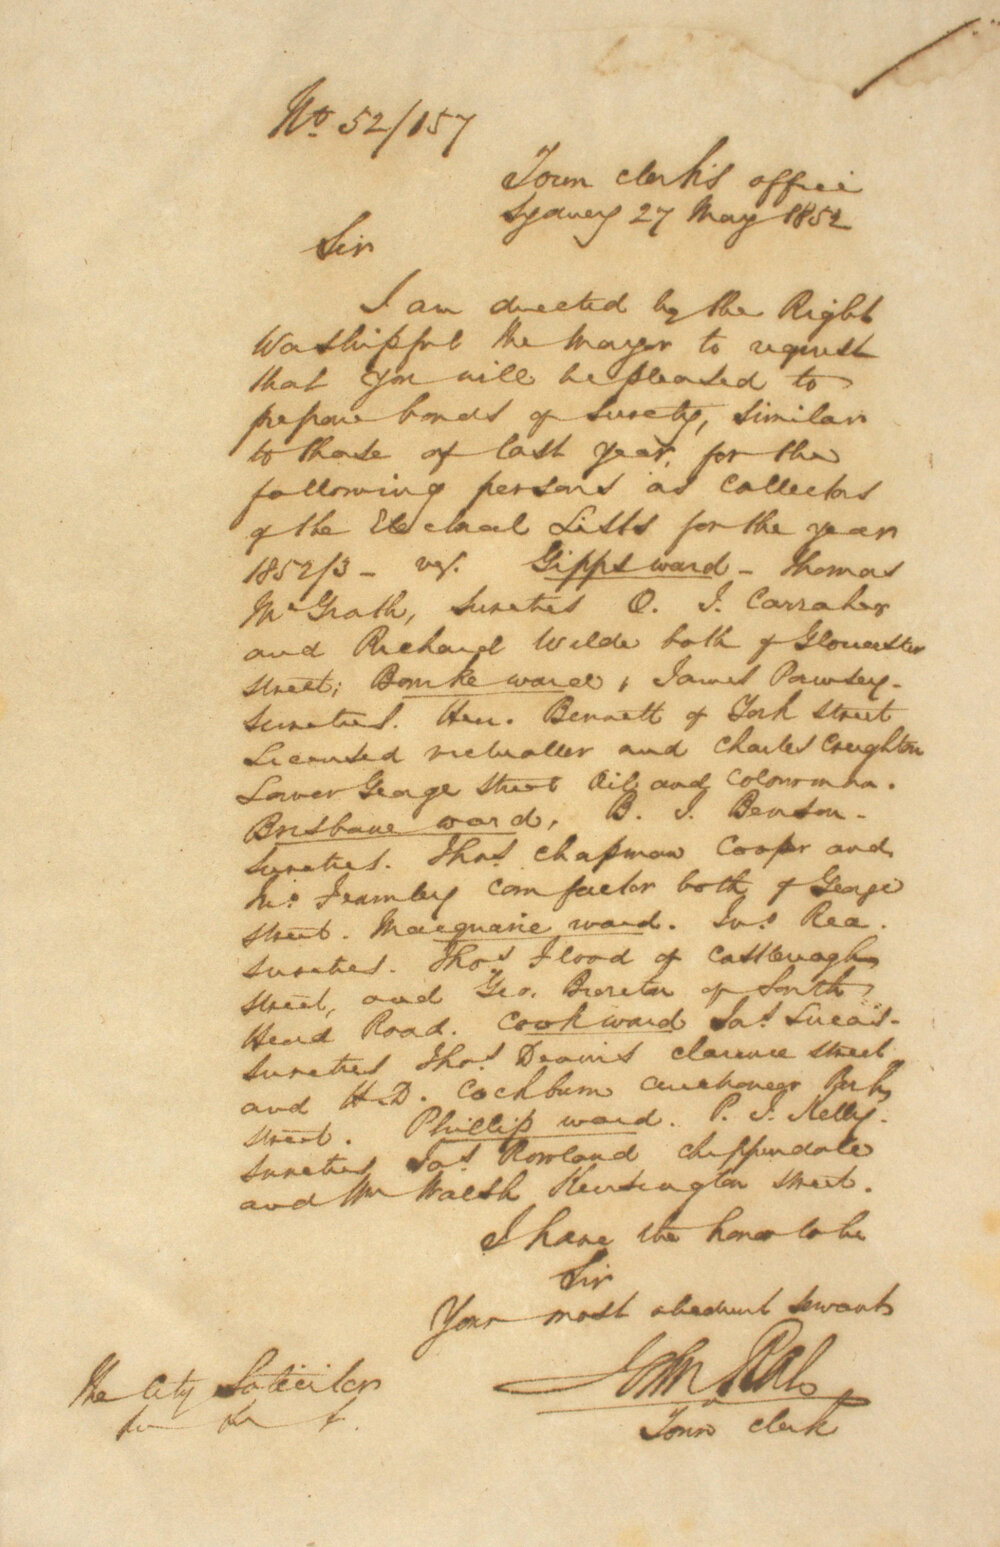 No. 52/157
Town Clerk's Office
Sydney 27 May 1852
Sir
I am directed by the Right
Worshipful the Mayor to request
that you will be pleased to
prepare bonds of surety, similar
to those of last year, for the
following persons as Collectors
of the Electoral Lists for the year
1852/3 - viz. Gipps ward - Thomas
McGrath, sureties O. J. Carraher
and Richard Wilde both of Gloucester
street; Bourke ward, James Pawsey -
sureties. Hen. Bennett of York Street
Licensed victualler and Charles Creighton
Lower George Street Oil and Colourman.
Brisbane ward, B. J. Benson -
sureties. Thos. Chapman Cooper and
Jno. Fearnley Corn factor both of George
street. Macquarie ward. Jno. Rea.
sureties. Thos Flood of Castlereagh
street, and Geo. Brereton of South
Head Road. Cook ward Jas. Lucas -
sureties Thos. Deavis Clarence street
and H.D. Cockburn auctioneer Park
street. Phillip ward. P. J. Kelly -
sureties Jas. Rowland Chippendale
and Wm Walsh Kensington street.
I have the honor to be
Sir
Your most obedient servant
John Rae
Town Clerk
The City Solicitor